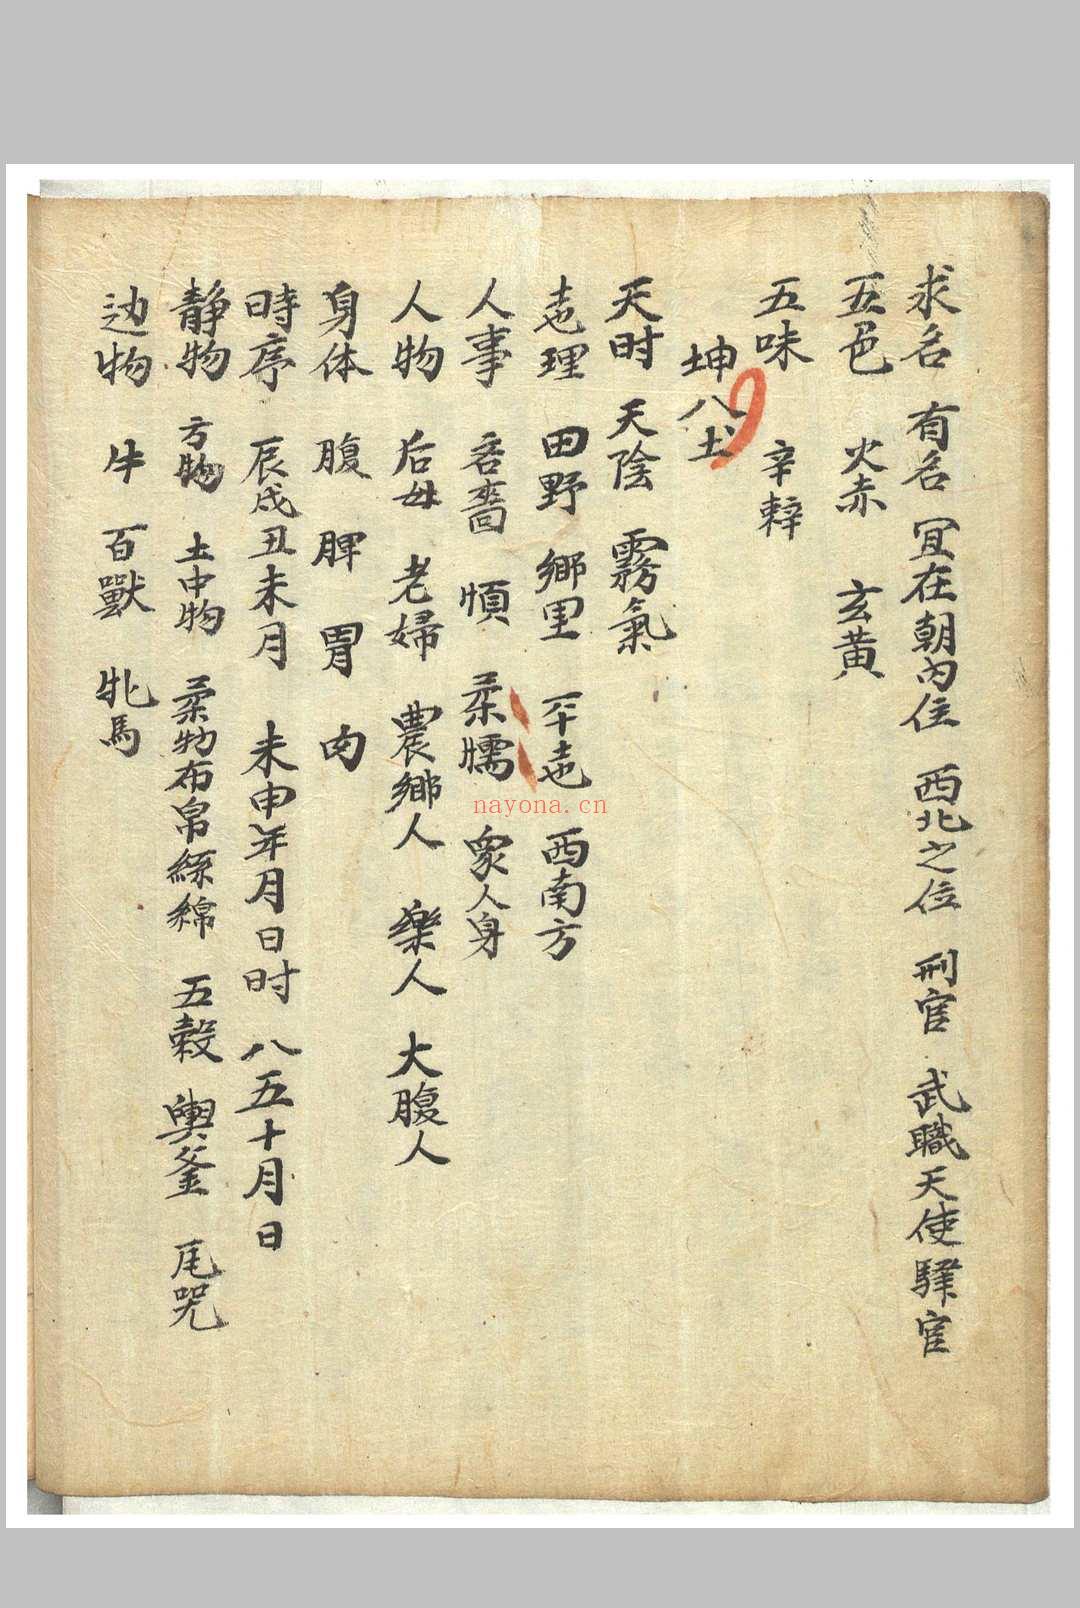 求名 有名 宜在朝內位 西北之位 刑官 武職天使驛官
五色 火赤 玄黃
五味 辛辣
坤八土
天时 天陰 霧氣
地理 田野 鄉里 平地 西南方
人事 吝嗇 順 柔懦 衆人身
人物 后母 老婦 農鄉人 樂人 大腹人
身体 腹 脾 胃 肉
時序 辰戌丑未月 未申年月日时 八五十月日
静物 方物 土中物 柔物布帛絲綿 五穀 輿釜 瓦器
动物 牛 百獸 牝馬
nayona.cn